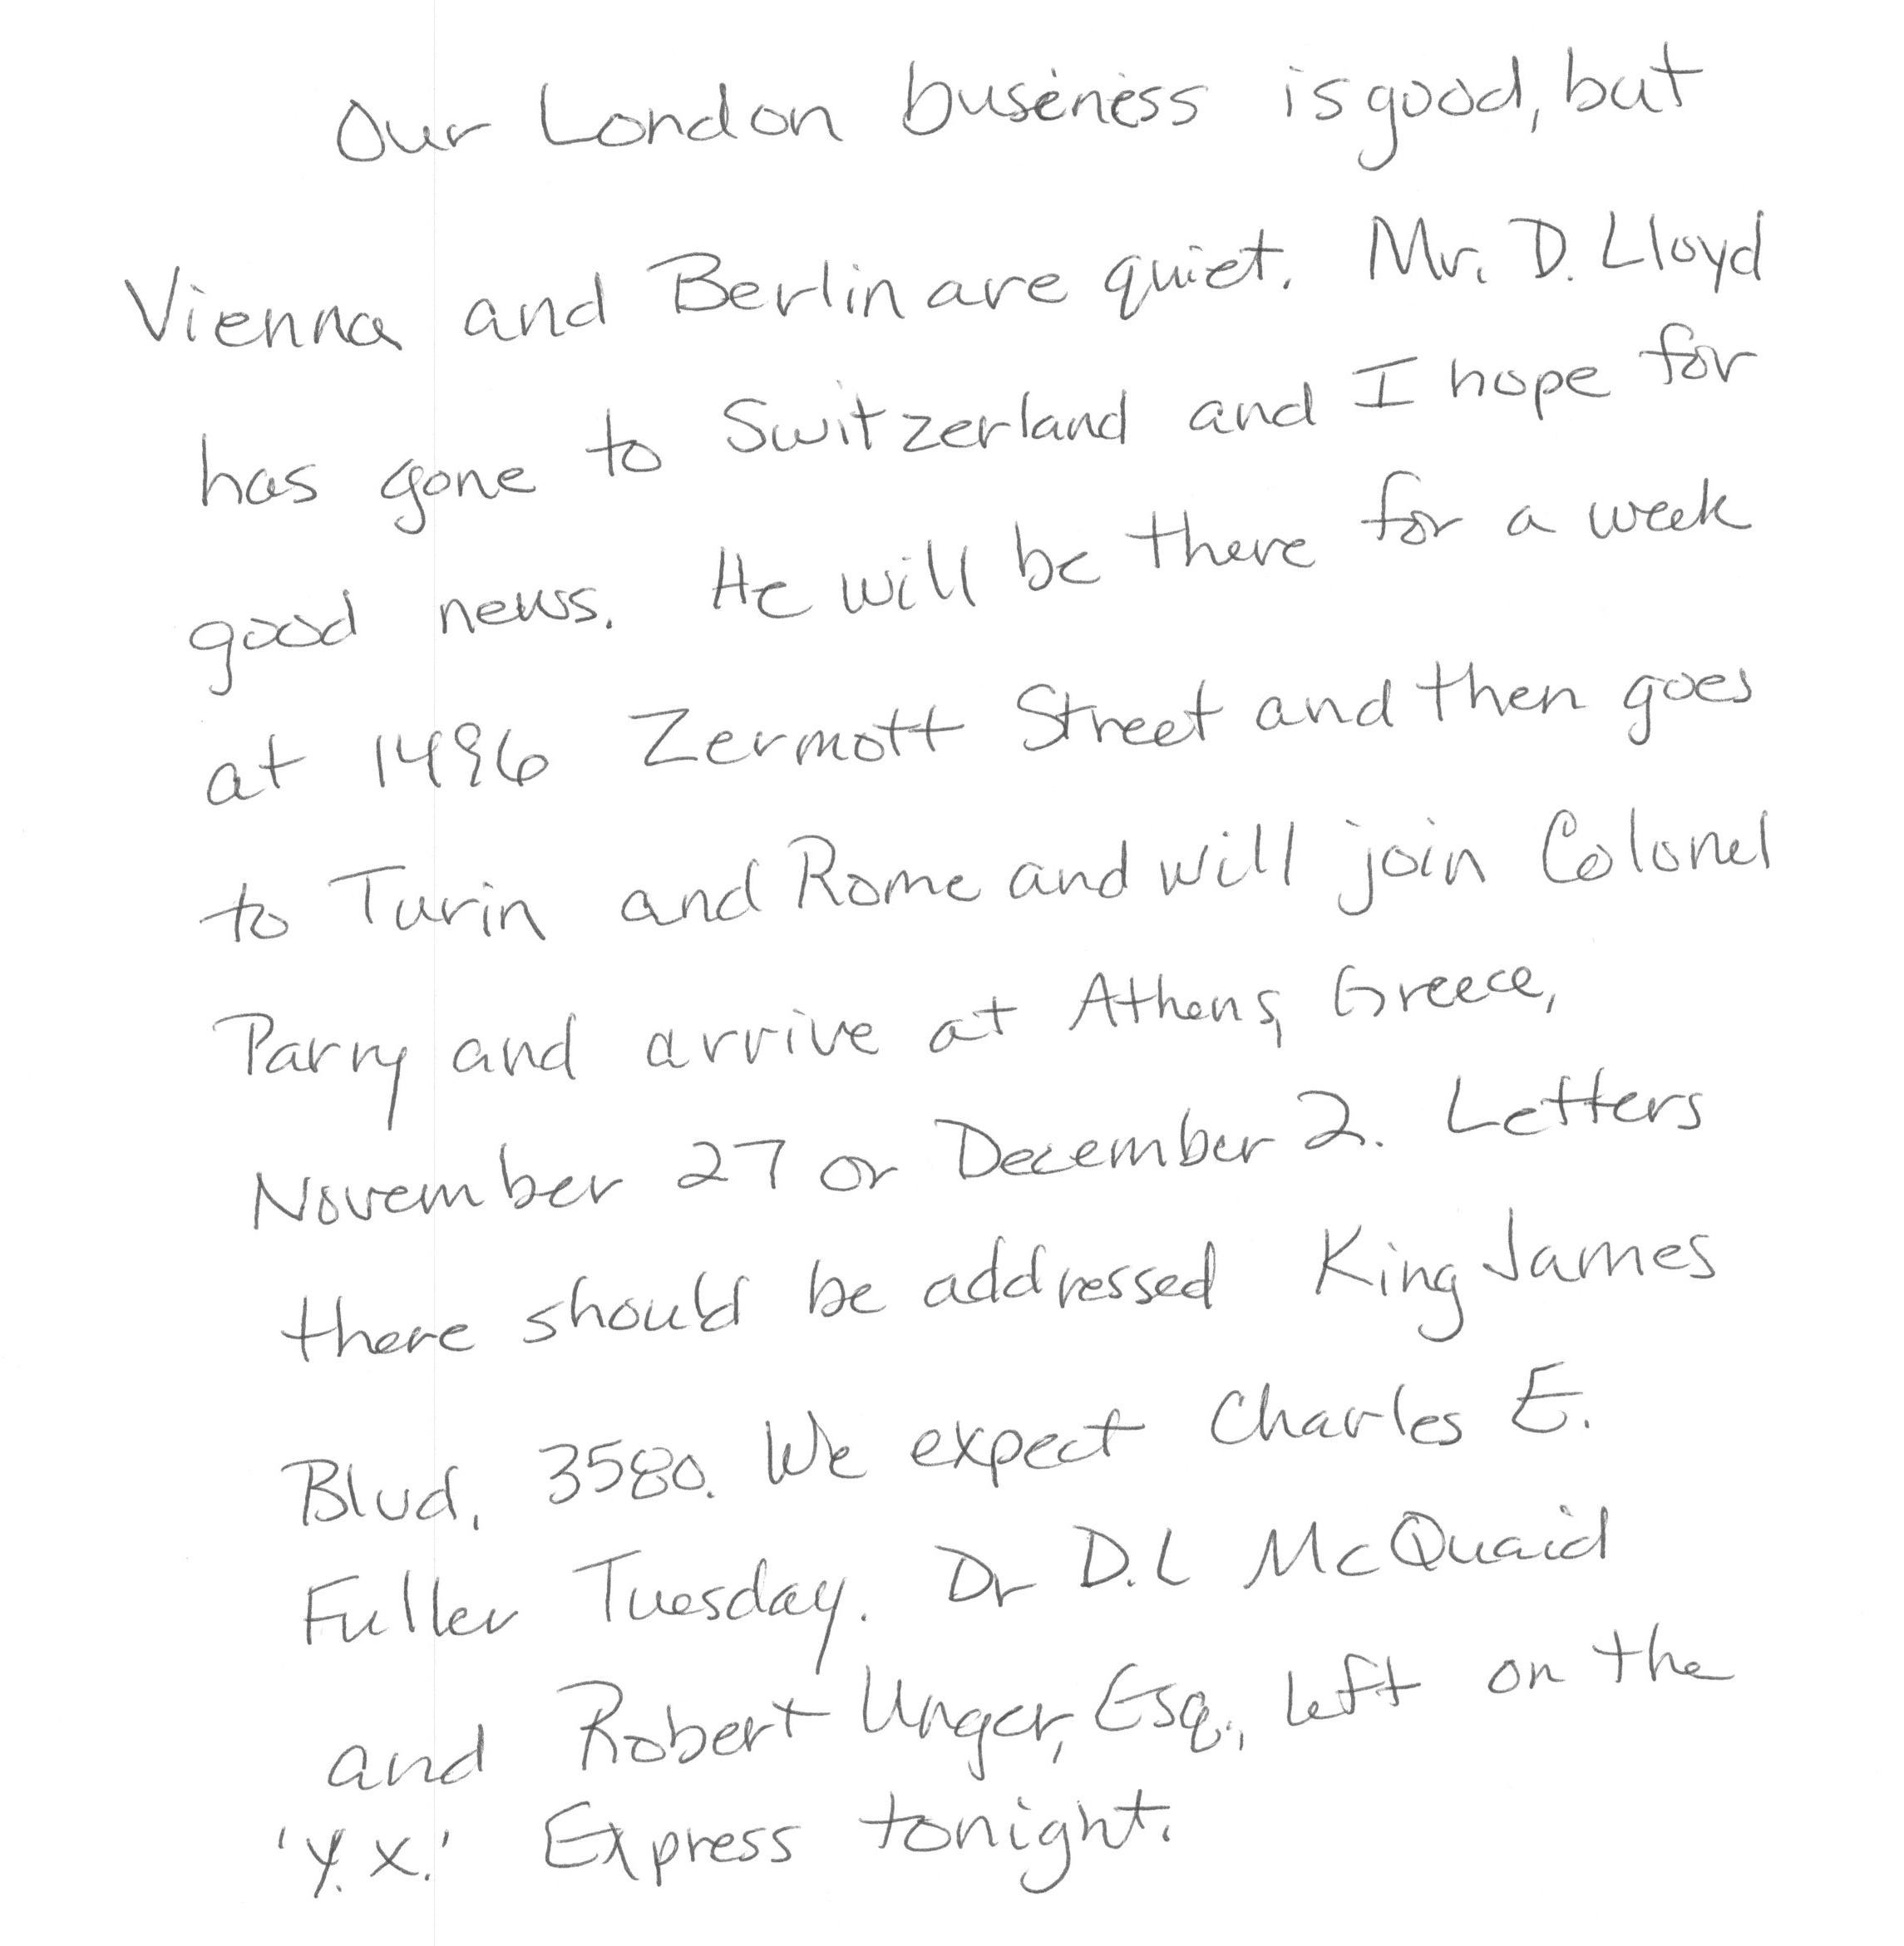 Our London business is good, but
Vienna and Berlin are quiet. Mr. D. Lloyd
has gone to Switzerland and I hope for
good news. He will be there for a week
at 1496 Zermott Street and then goes
to Turin and Rome and will join Colonel
Parry and arrive at Athens, Greece,
November 27 or December 2. Letters
there should be addressed King James
Blvd. 3580. We expect Charles E.
Fuller Tuesday. Dr D.L McQuaid
and Robert Unger, Esq., left on the
'Y.X.' Express tonight.